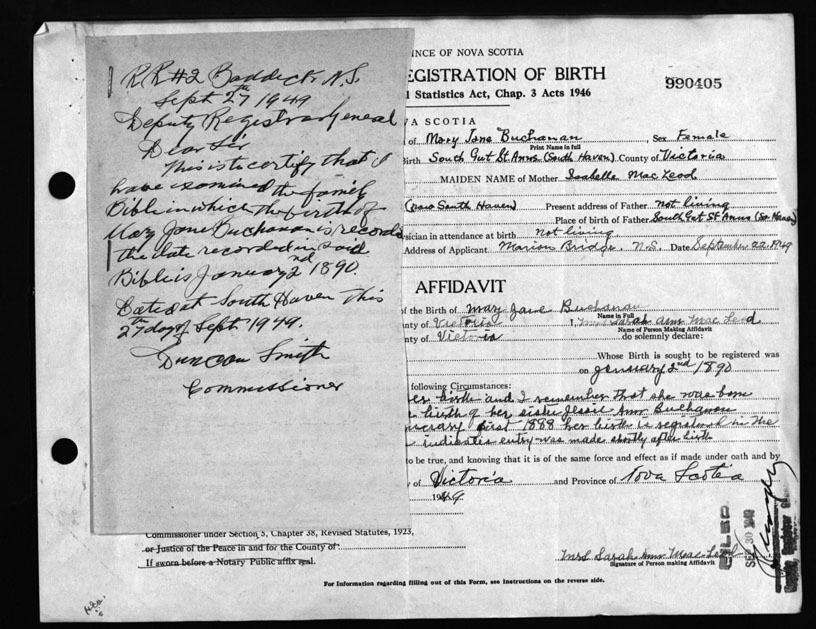 R R #2 Baddeck N.S.
Sept 27th 1949
Deputy Registrar General
Dear Sir
This is to certify that I
have examined the family
Bible in which the birth of
Mary Jane Buchanan is recorded
the date recorded in said
Bible is January 2nd 1890.
Dated at South Haven this
27th day of Sept 1949.
Duncan Smith
Commissioner
INCE OF NOVA SCOTIA
EGISTRATION OF BIRTH
990405
l Statistics Act, Chap. 3 Acts 1946
VA SCOTIA
of Mary Jane Buchanan Sex Female
Print Name in full
Birth South Gut St Anns (South Haven) County of Victoria
MAIDEN NAME of Mother Isabelle MacLeod
(now South Haven) Present address of Father not living
Place of birth of Father South Gut St Anns (So. Haven)
sician in attendance at birth Not living
Address of Applicant Marion Bridge, N.S. Date September 22 1949
AFFIDAVIT
of the Birth of Mary Jane Buchanan
Name in Full
nty of Victoria I, Mrs Sarah Ann Mac Leod
Name of Person Making Affidavit
nty of Victoria do solemnly declare:
Whose Birth is sought to be registered was
on January 2nd 1890
following Circumstances:
her birth and I remember that she was born
birth of her sister Jessie Ann Buchanan
first 1888 her birth is registered in the
indicates entry was made shortly after birth
to be true, and knowing that it is of the same force and effect as if made under oath and by
y of Victoria and Province of Nova Scotia
1949.
Commissioner under Section 5, Chapter 38, Revised Statutes, 1923,
or Justice of the Peace in and for the County of
If sworn before a Notary Public affix seal.
Mrs Sarah Ann Mac Leod
Signature of Person making Affidavit
FILED
SEP 30 1949
For Information regarding filling out of this Form, see Instructions on the reverse side.